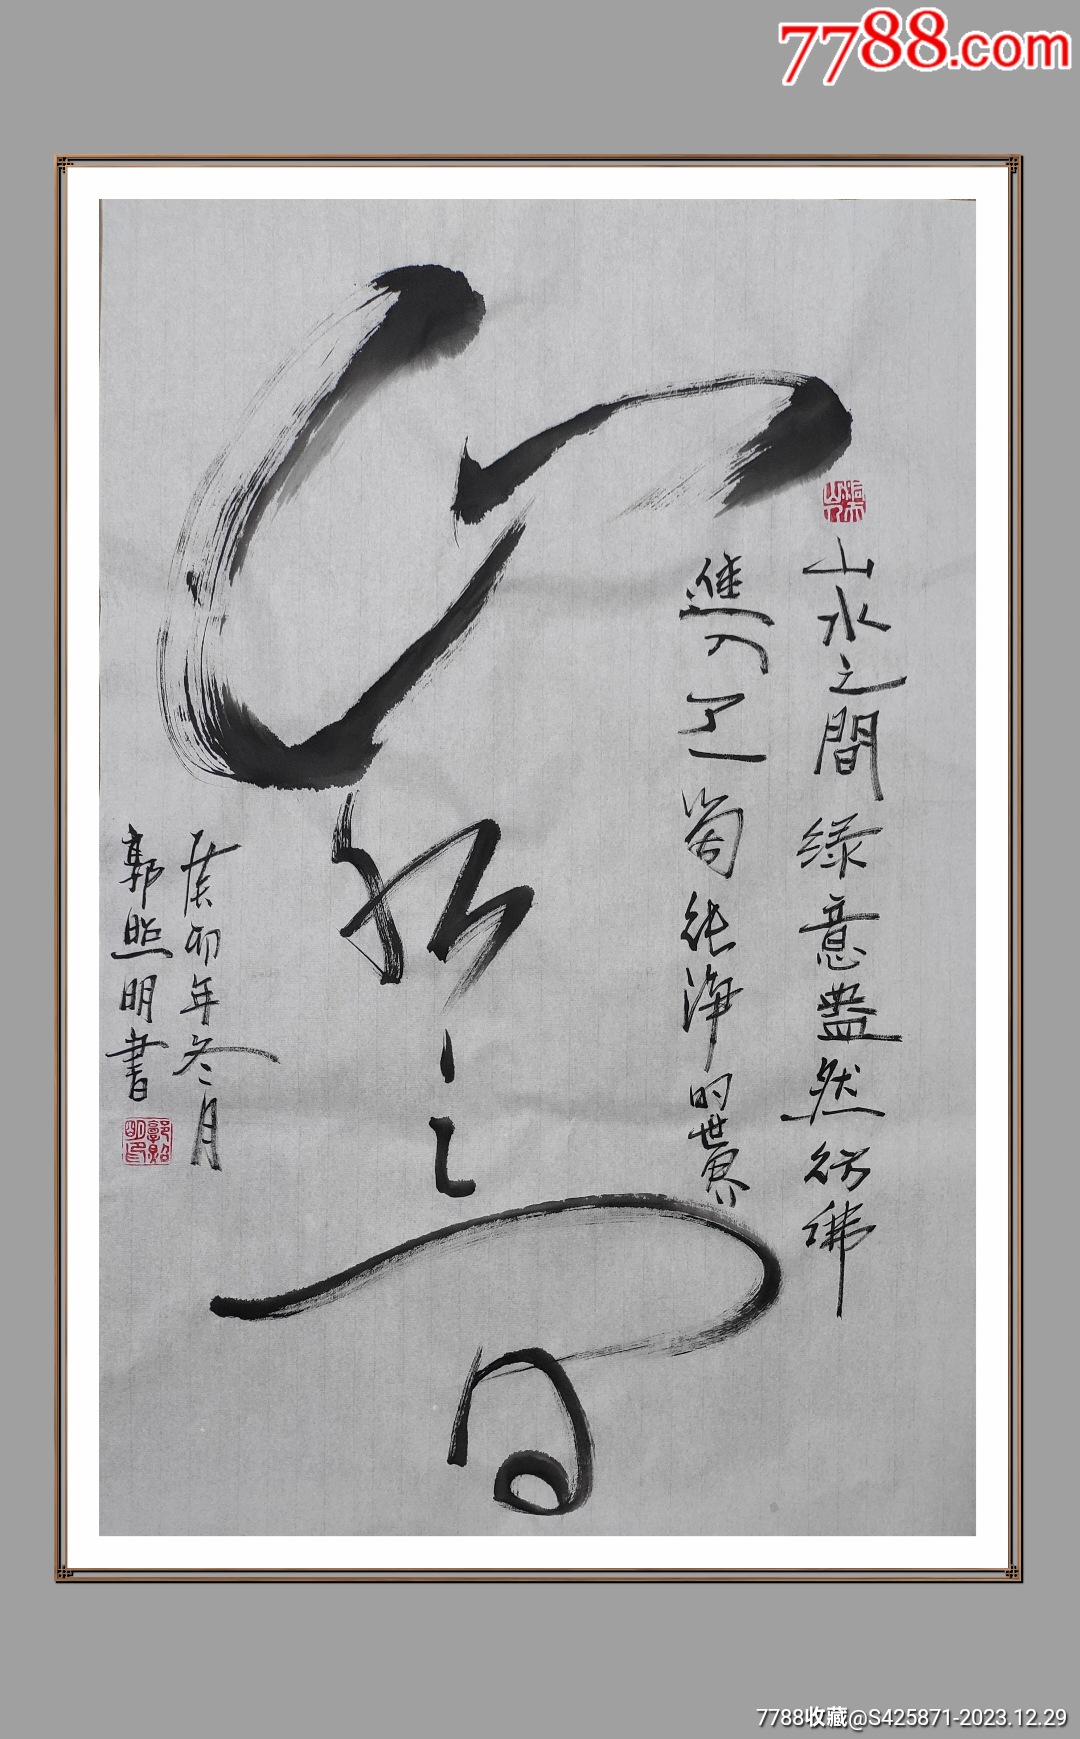 7788.com
山水之間綠意盎然彷彿
進入了一箇純淨的世界
山水之間
癸卯年冬月
郭照明書
7788收藏@S425871-2023.12.29